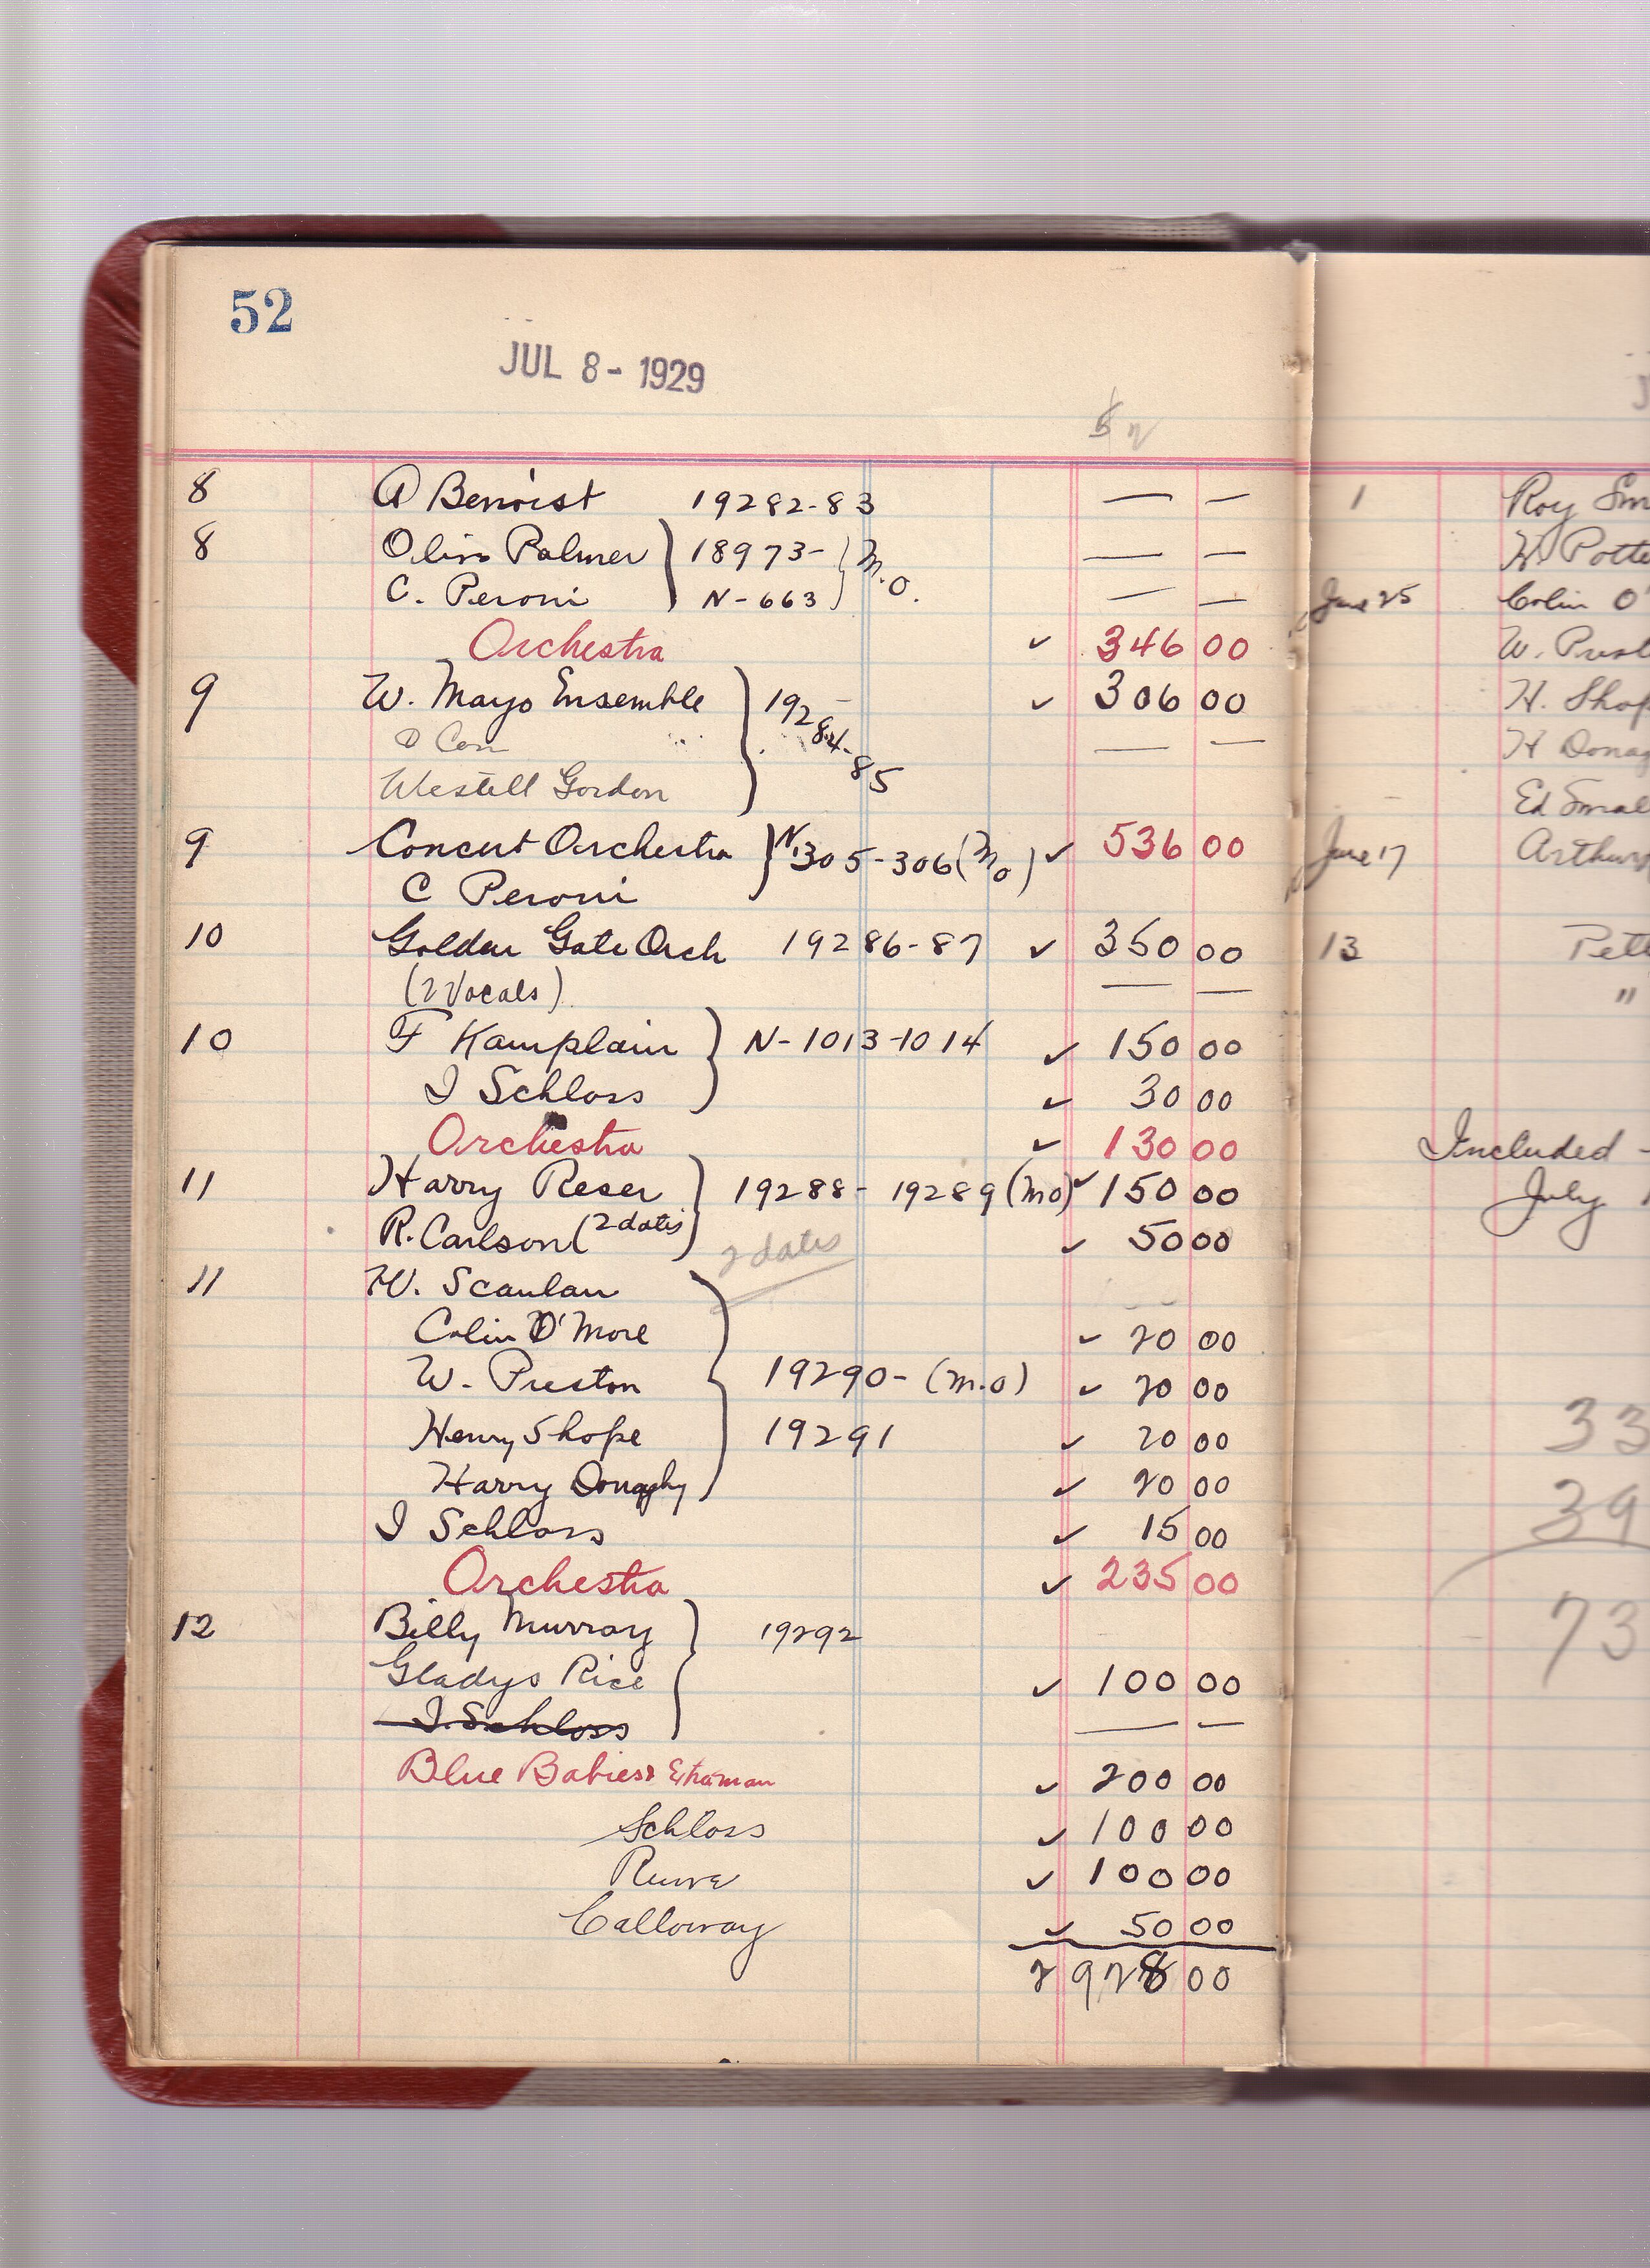 52
JUL 8- 1929
8 A Benoist 19282-83 — —
8 Olive Palmer } 18973- } M.O. — —
C. Peroni N-663 — —
Orchestra ✓ 346 00
9 W. Mayo Ensemble } 19284-85 ✓ 306 00
— —
Westell Gordon
9 Concert Orchestra } N.305-306 (M.O) ✓ 536 00
C Peroni
10 Golden Gate Orch 19286-87 ✓ 350 00
(2 Vocals) — —
10 F Kamplain } N-1013-1014 ✓ 150 00
I Schloss ✓ 30 00
Orchestra ✓ 130 00
11 Harry Reser } 19288-19289 (M.O) ✓ 150 00
R. Carlson (2 dates) ✓ 50 00
2 dates
11 W. Scanlan
Colin O'More ✓ 20 00
W. Preston 19290- (M.O) ✓ 20 00
Henry Shope 19291 ✓ 20 00
Harry Donaghy ✓ 20 00
I Schloss ✓ 15 00
Orchestra ✓ 235 00
12 Billy Murray } 19292
Gladys Rice ✓ 100 00
I. Schloss — —
Blue Babies & Extra man ✓ 200 00
Schloss ✓ 100 00
✓ 100 00
Calloway ✓ 50 00
2928 00
1 Roy Sm
W Potte
June 25 Colin O'
W. Prest
H. Shop
H Donag
Ed Smal
June 17 Arthur
13 Pett
"
Included -
July 1
33
39
73